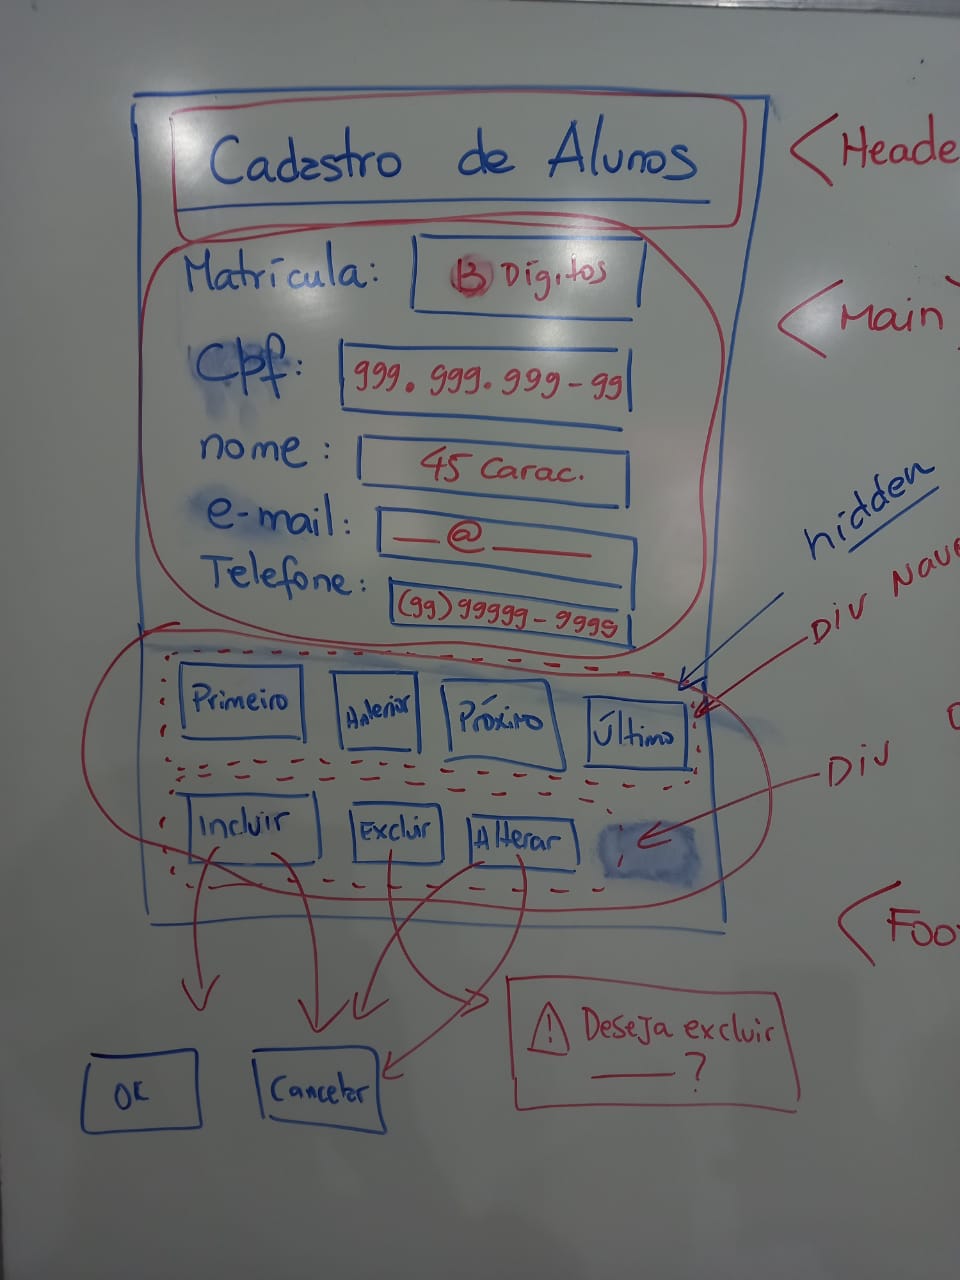 Cadastro de Alunos
<Heade
Matrícula: 13 Dígitos
<Main>
Cpf: 999.999.999-99
nome: 45 Carac.
e-mail: __@____
hidden
Telefone: (99)99999-9999
Div Nave
Primeiro Anterior Próximo Último
Div
Incluir Excluir Alterar
<Foo
! Deseja excluir
____?
OK Cancelar